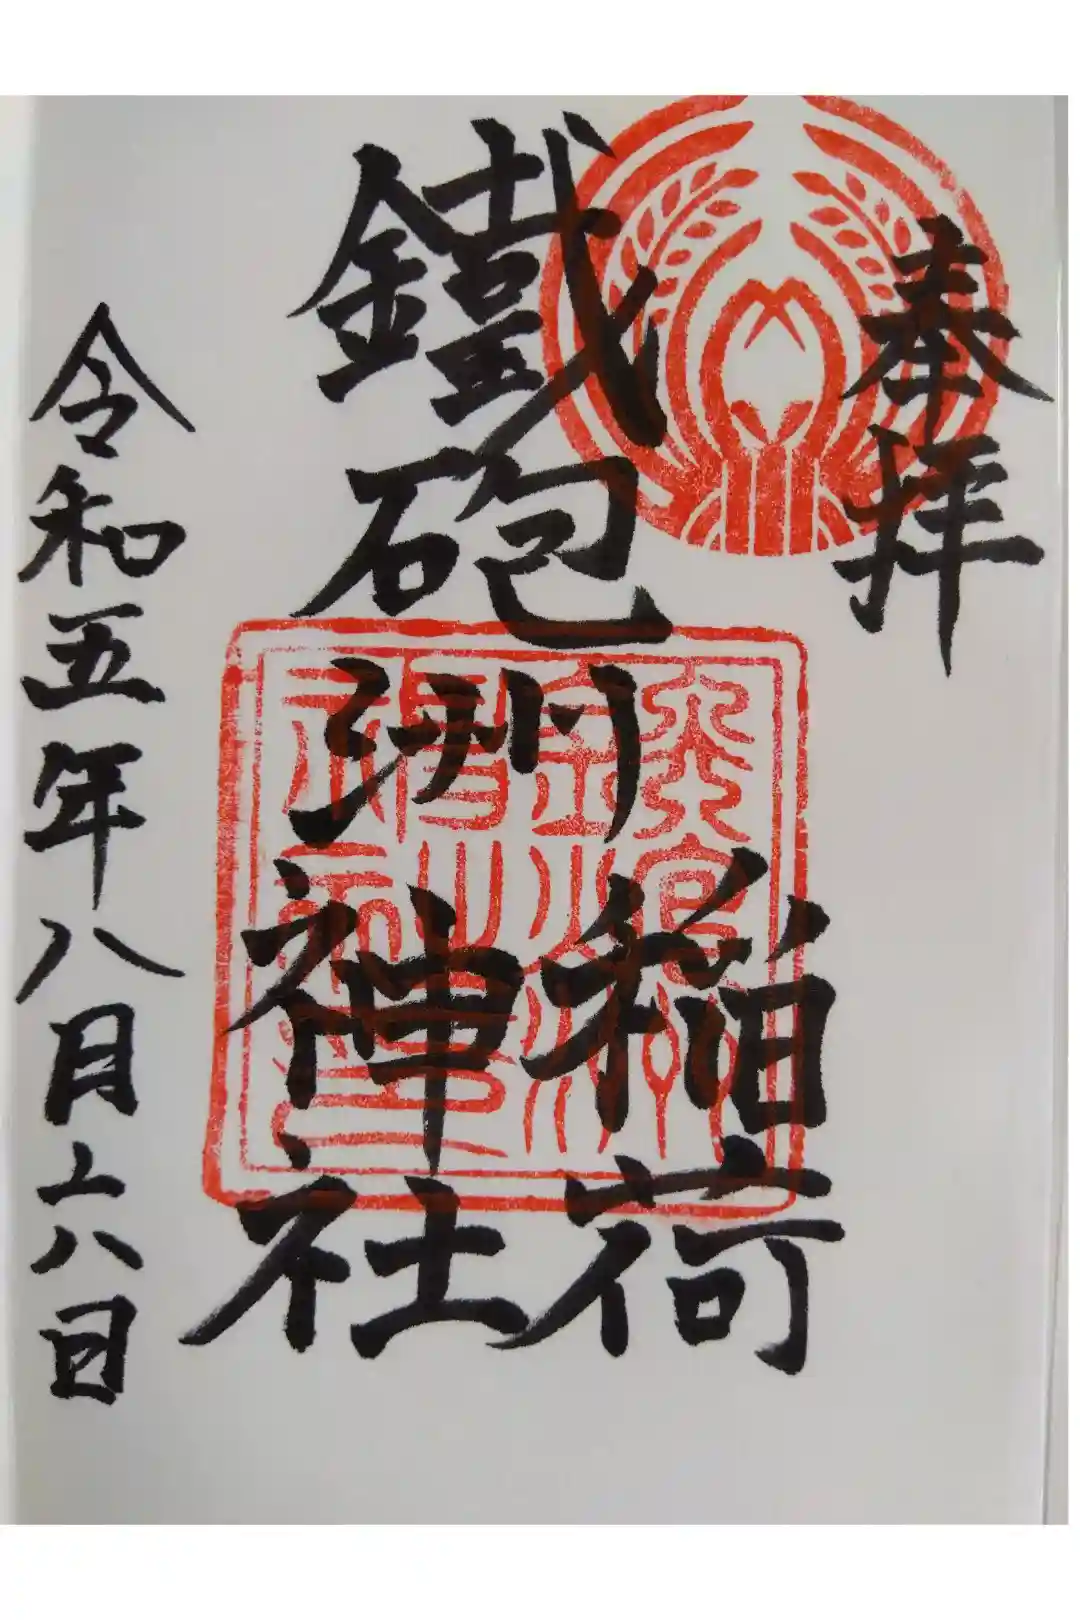 奉拝
鐵砲洲
稲荷
神社
令和五年八月六日